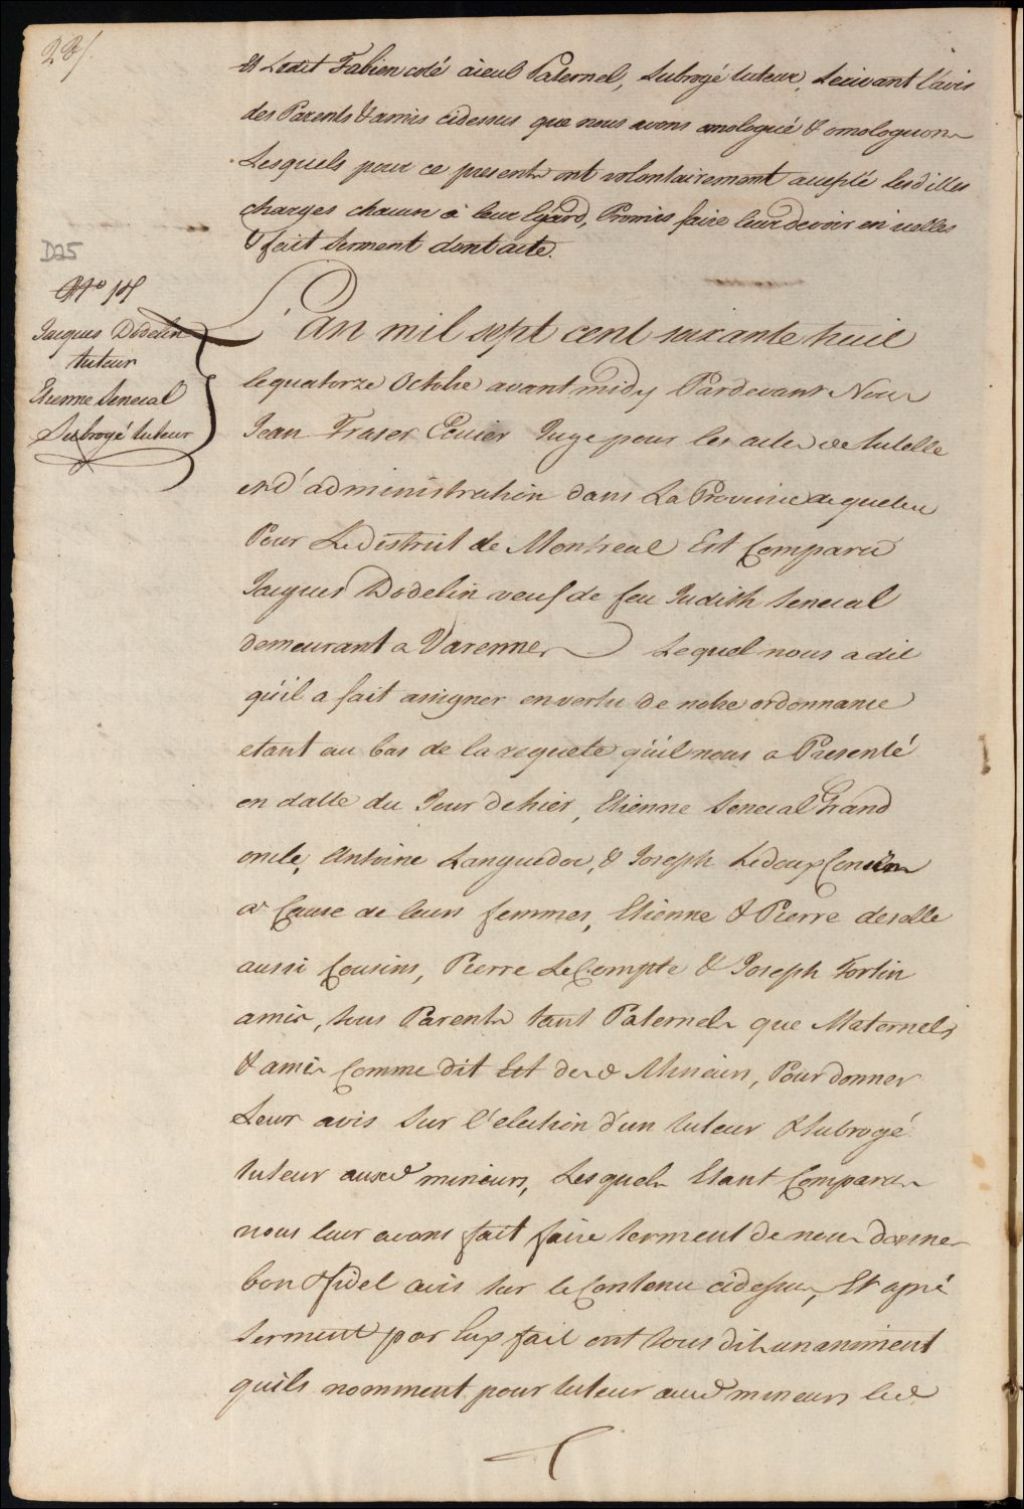 28/.
& Ledit Fabien coté aieul Paternel, Subrogé tuteur, Suivant l'avis
des Parents & amis cidessus que nous avons omologué & omologuons
Lesquels pour ce presents ont volontairement accepté lesdittes
charges chacun à leur Egard, Promis faire leur devoir en icelles
& fait serment dont acte.
D25
Jacques Dodelin
tuteur
Etienne Senecal
Subrogé tuteur
L'an mil sept cent soixante huit
le quatorze Octobre avant midy Pardevant Nous
Jean Fraser Ecuier Juge pour les actes de tutelle
et d'administration dans La Province de quebec
Pour Le district de Montreal Est Comparu
Jacques Dodelin veuf de feu Judith Senecal
demeurant a Varennes Lequel nous a dit
qu'il a fait assigner en vertu de notre ordonnance
etant au bas de la requete qu'il nous a Presenté
en datte du Jour de hier, Etienne Senecal Grand
oncle, Antoine Languedoc, & Joseph Ledoux Cousins
a Cause de leurs femmes, Etienne & Pierre deselle
aussi Cousins, Pierre LeCompte & Joseph Fortin
amis, tous Parents tant Paternels que Maternels
& amis Comme dit Est desd Mineurs, Pour donner
Leur avis Sur l'election d'un tuteur & Subrogé
tuteur auxd mineurs, Lesquels Etant Comparus
nous leur avons fait faire serment de nous donner
bon & fidel avis sur le Contenu cidessus, Et aprés
Serment par Eux fait ont tous dit unaniment
quils nomment pour tuteur auxd mineurs led